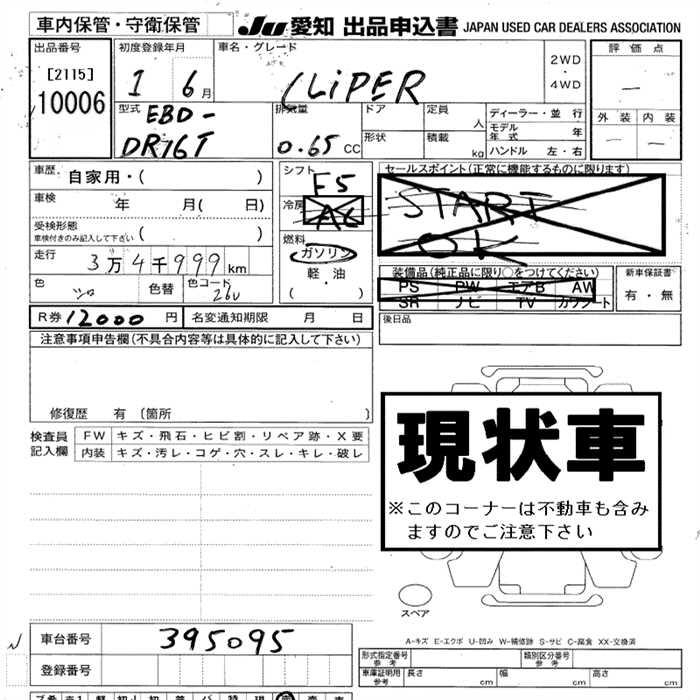 車内保管・守衛保管 JU 愛知 出品申込書 JAPAN USED CAR DEALERS ASSOCIATION
出品番号
[2115]
10006
初度登録年月
1 6 月
車名・グレード
CLiPER
2WD
・
4WD
評価点
外装 内装
型式 EBD-
DR16T
排気量
0.65 CC
ドア
定員 人
形状
積載 kg
ディーラー・並 行
モデル年式 年
ハンドル 左・右
車歴 自家用・( )
車検 年 月( 日)
受検形態
車検付きのみ記入して下さい ( )
走行 3万4千999km
色 シロ 色替 色コード 26U
シフト F5
冷房 AC
燃料
ガソリン
軽・油
( )
セールスポイント(正常に機能するものに限ります)
START
OK
装備品(純正品に限り○をつけてください)
PS PW エアB AW
SR ナビ TV カワシート
新車保証書
有・無
R券 12000 円 名変通知期限 月 日
後日品
注意事項申告欄(不具合内容等は具体的に記入して下さい)
修復歴 有 〔箇所 〕
検査員
記入欄
FW キズ・飛石・ヒビ割・リペア跡・X要
内装 キズ・汚レ・コゲ・穴・スレ・キレ・破レ
現状車
※このコーナーは不動車も含み
ますのでご注意下さい
スペア
A-キズ E-エクボ U-凹み W-補修跡 S-サビ C-腐食 XX-交換済
車台番号 395095
登録番号
形式指定番号
参考
類別区分番号
参考
車庫証明用
参考
長さ cm 幅 cm 高さ cm